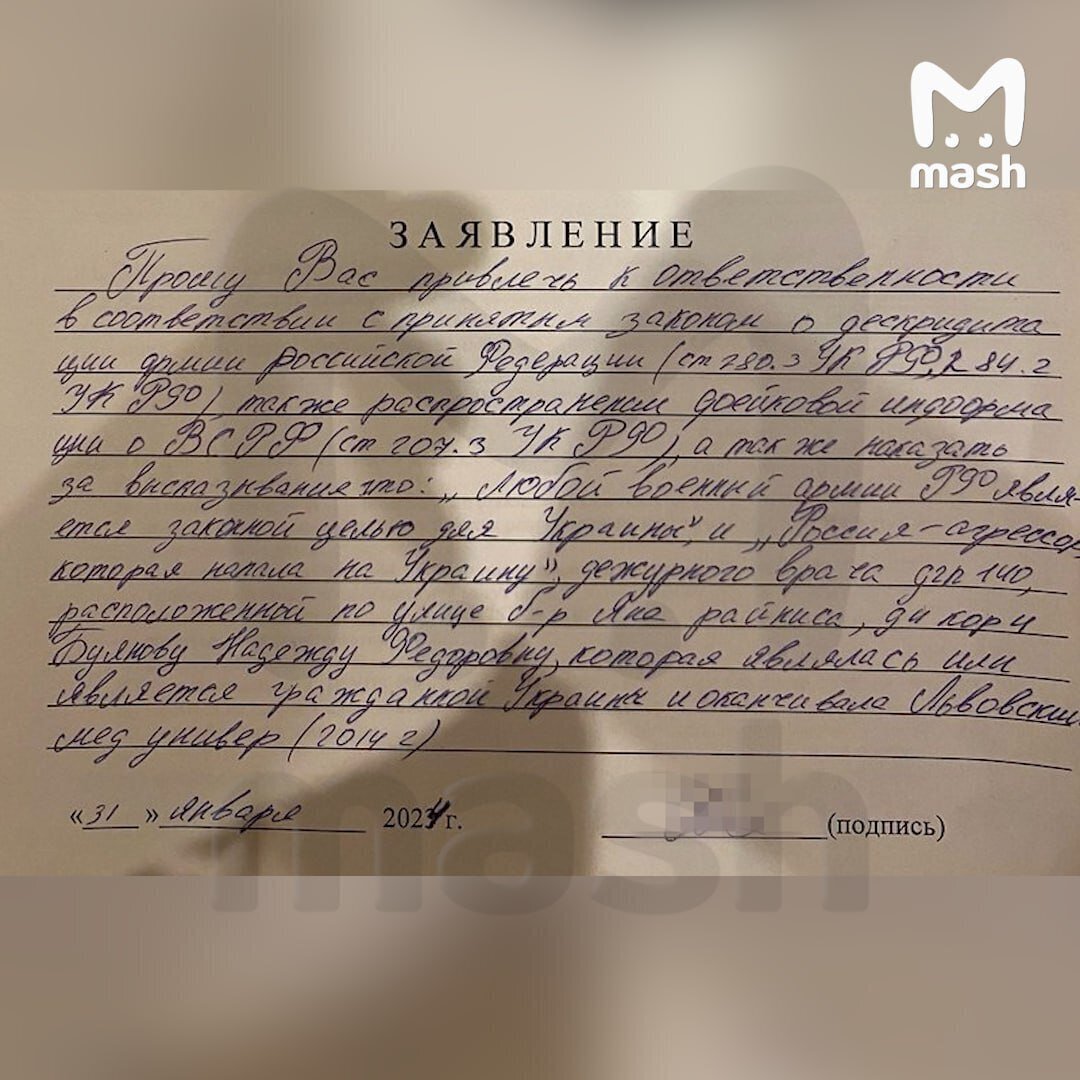 mash
ЗАЯВЛЕНИЕ
Прошу Вас привлечь к ответственности
в соответствии с принятым законом о дескридита
ции армии Российской Федерации (ст 280.3 УК РФ, 284.2
УК РФ), также распространении фейковой информа
ции о ВС РФ (ст 207.3 УК РФ), а так же наказать
за высказывания что: „Любой военный армии РФ явля-
ется законной целью для Украины", и „Россия-агрессор
которая напала на Украину", дежурного врача дгп 140,
расположенной по улице б-р Яна райниса, д4 кор4
Буянову Надежду Федоровну, которая являлась или
является гражданкой Украины и оканчивала Львовский
мед универ (2014 г)
«31» января 2024 г.
(подпись)
mash